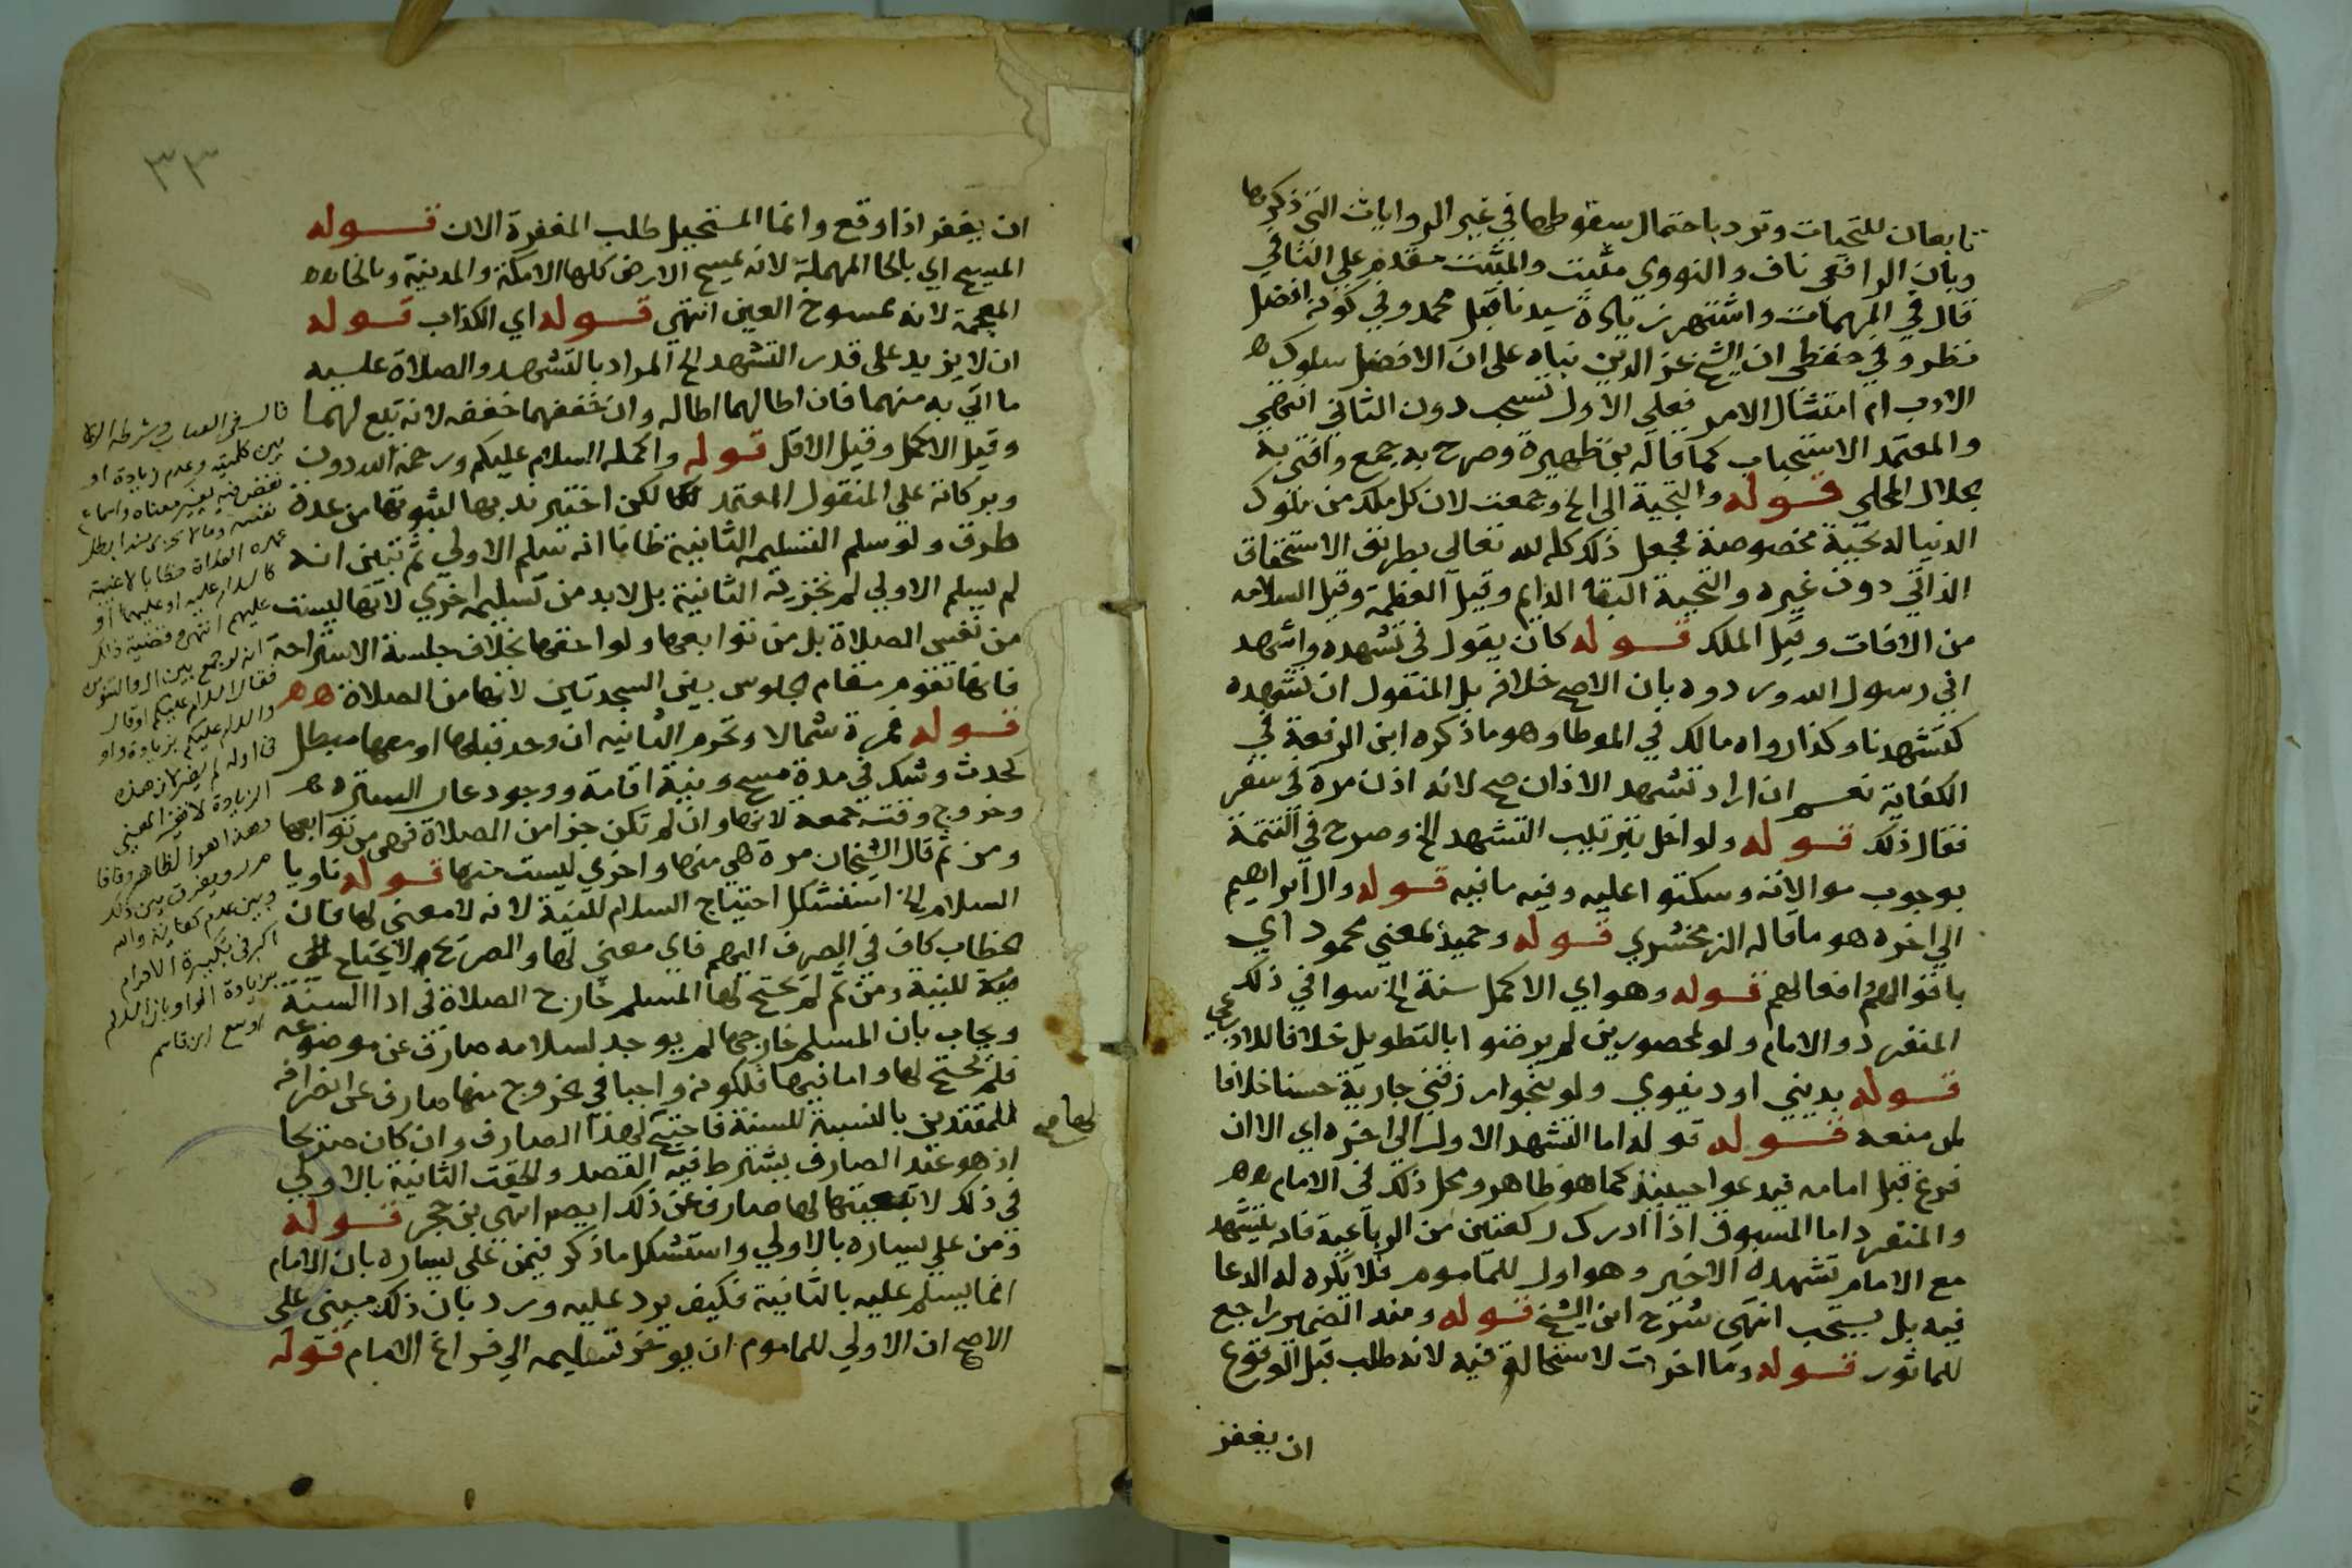 تابعان للتحيات وترد باحتمال سقوطها في غير الروايات التي ذكرها
وبان الرافعي ناف والنووي مثبت والمثبت مقدم على النافي
قال في المهمات واشتهر زيادة سيدنا قبل محمد وفي كونه افضل
نظر وفي حفظي ان الشيخ عز الدين بناه على ان الافضل سلوك
الادب ام امتثال الامر فعلى الاول تستحب دون الثاني انتهى
والمعتمد الاستحباب كما قاله بن ظهيرة وصرح به جمع وافتى به
الجلال المحلي قوله والتحية الي الخ وجمعت لان كل ملك من ملوك
الدنيا له تحية مخصوصة فجعل ذلك كله لله تعالى بطريق الاستحقاق
الذاتي دون غيره والتحية البقا الدايم وقيل العظمة وقيل السلامه
من الافات وقيل الملك قوله كان يقول في تشهده واشهد
اني رسول الله وردوه بان الاصح خلافه بل المنقول ان تشهده
كتشهدنا وكذا رواه مالك في الموطا وهو ما ذكره ابن الرفعة في
الكفاية نعم ان اراد تشهد الاذان صح لانه اذن مرة في سفر
فقال ذلك قوله ولو اخل بترتيب التشهد الخ وصرح في التتمة
بوجوب موالاته وسكتوا عليه وفيه ما فيه قوله وال ابراهيم
الي اخره هو ما قاله الزمخشري قوله وحميد بمعنى محمود اي
باقوالهم وافعالهم قوله وهو اي الاكمل سنة الخ سوا في ذلك
المنفرد والامام ولو لمحصورين لم يرضوا بالتطويل خلافا للاذرعي
قوله بديني او دنيوي ولو بنحو ارزقني جارية حسنا خلافا
لمن منعه قوله قوله اما التشهد الاول الي اخره اي الا ان
فرغ قبل امامه فيدعوا حينيذ كما هو ظاهر ومحل ذلك في الامام
والمنفرد اما المسبوق اذا ادرك ركعتين من الرباعية فانه يتشهد
مع الامام تشهده الاخير وهو اول للماموم فلا يكره له الدعا
فيه بل يستحب انتهى شرح ابن الشيخ قوله ومنه الضمير راجع
للماثور قوله وما اخرت لا استحالة فيه لانه طلب قبل الوقوع
ان يغفر
٣٣
ان يغفر اذا وقع وانما المستحيل طلب المغفرة الان قوله
المسيح اي بالحا المهملة لانه يمسح الارض كلها الا مكة والمدينة وبالخا
المعجمة لانه ممسوح العين انتهى قوله اي الكذاب قوله
ان لا يزيد على قدر التشهد الخ المراد بالتشهد والصلاة عليه
ما اتي به منهما فان اطالهما اطاله وان خففهما خففه لانه تبع لهما
وقيل الاكمل وقيل الاقل قوله واكمله السلام عليكم ورحمة الله دون
وبركاته على المنقول المعتمد لكن اختير ندبها لثبوتها من عدة
طرق ولو سلم التسليمه الثانية ظانا انه سلم الاولى ثم تبين انه
لم يسلم الاولى لم تجزيه الثانية بل لابد من تسليمه اخرى لانها ليست
من نفس الصلاة بل من توابعها ولواحقها بخلاف جلسة الاستراحة
فانها تقوم مقام الجلوس بين السجدتين لانها من الصلاة
قوله فمرة شمالا وتحرم الثانيه ان وجد قبلها او معها مبطل
كحدث وشك في مدة مسح ونية اقامة ووجود عار السترة
وخروج وقت جمعة لانها وان لم تكن جزا من الصلاة فهي من توابعها
ومن ثم قال الشيخان مرة هي منها واخرى ليست منها قوله ناويا
السلام الخ استشكل احتياج السلام للنية لانه لا معنى لها فان
الخطاب كاف في الصرف اليهم فاي معنى لها والصريح لا يحتاج
للنية ومن ثم لم يحتج لها المسلم خارج الصلاة في ادا السنة
ويجاب بان المسلم خارجها لم يوجد لسلامه صارف عن موضوعه
فلم يحتج لها واما فيها فلكونه واجبا في خروج منها صارف عن انصرافه
للمقتدين بالنسبة للسنة فاحتيج لهذا الصارف وان كان صريحا
لها صح
اذ هو عند الصارف يشترط فيه القصد والحقت الثانية بالاولى
في ذلك لا تبعيتها لها صارف عن ذلك ايضا انتهى بن حجر قوله
ومن على يساره بالاولى واستشكل ما ذكر فيمن على يساره بان الامام
انما يسلم عليه بالثانية فكيف يرد عليه ورد بان ذلك مبني على
الاصح ان الاولى للماموم ان يوخر تسليمه الي فراغ الامام قوله
قال في العباب وشرطه
بين كلمتيه وعدم زيادة او
نقص فيه يغير معناه واسماع
عليهم انتهى وقضية ذلك
انه لو جمع بين ال والتنوين
فقال السلام عليكم او قال
والسلام عليكم بزيادة واو
في اوله لم يضر لان هذه
الزيادة لا تغير المعنى
وهذا هو الظاهر وفاقا
م ر ويفرق بين ذلك
وبين عدم كفاية والله
اكبر في تكبيرة الاحرام
بزيادة الواو بان السلام
اوسع ابن قاسم